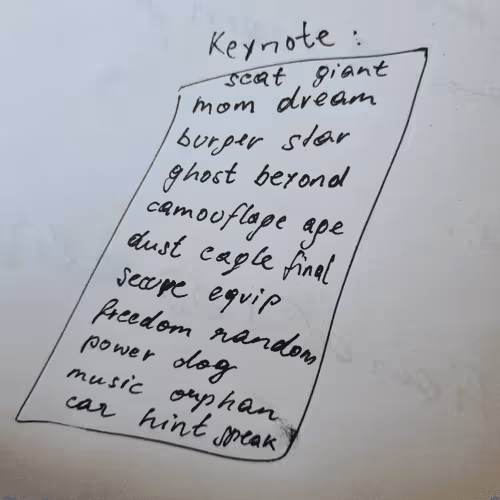 Keynote:
scat giant
mom dream
burger star
ghost beyond
camouflage age
dust eagle final
secure equip
freedom random
power dog
music orphan
car hint speak